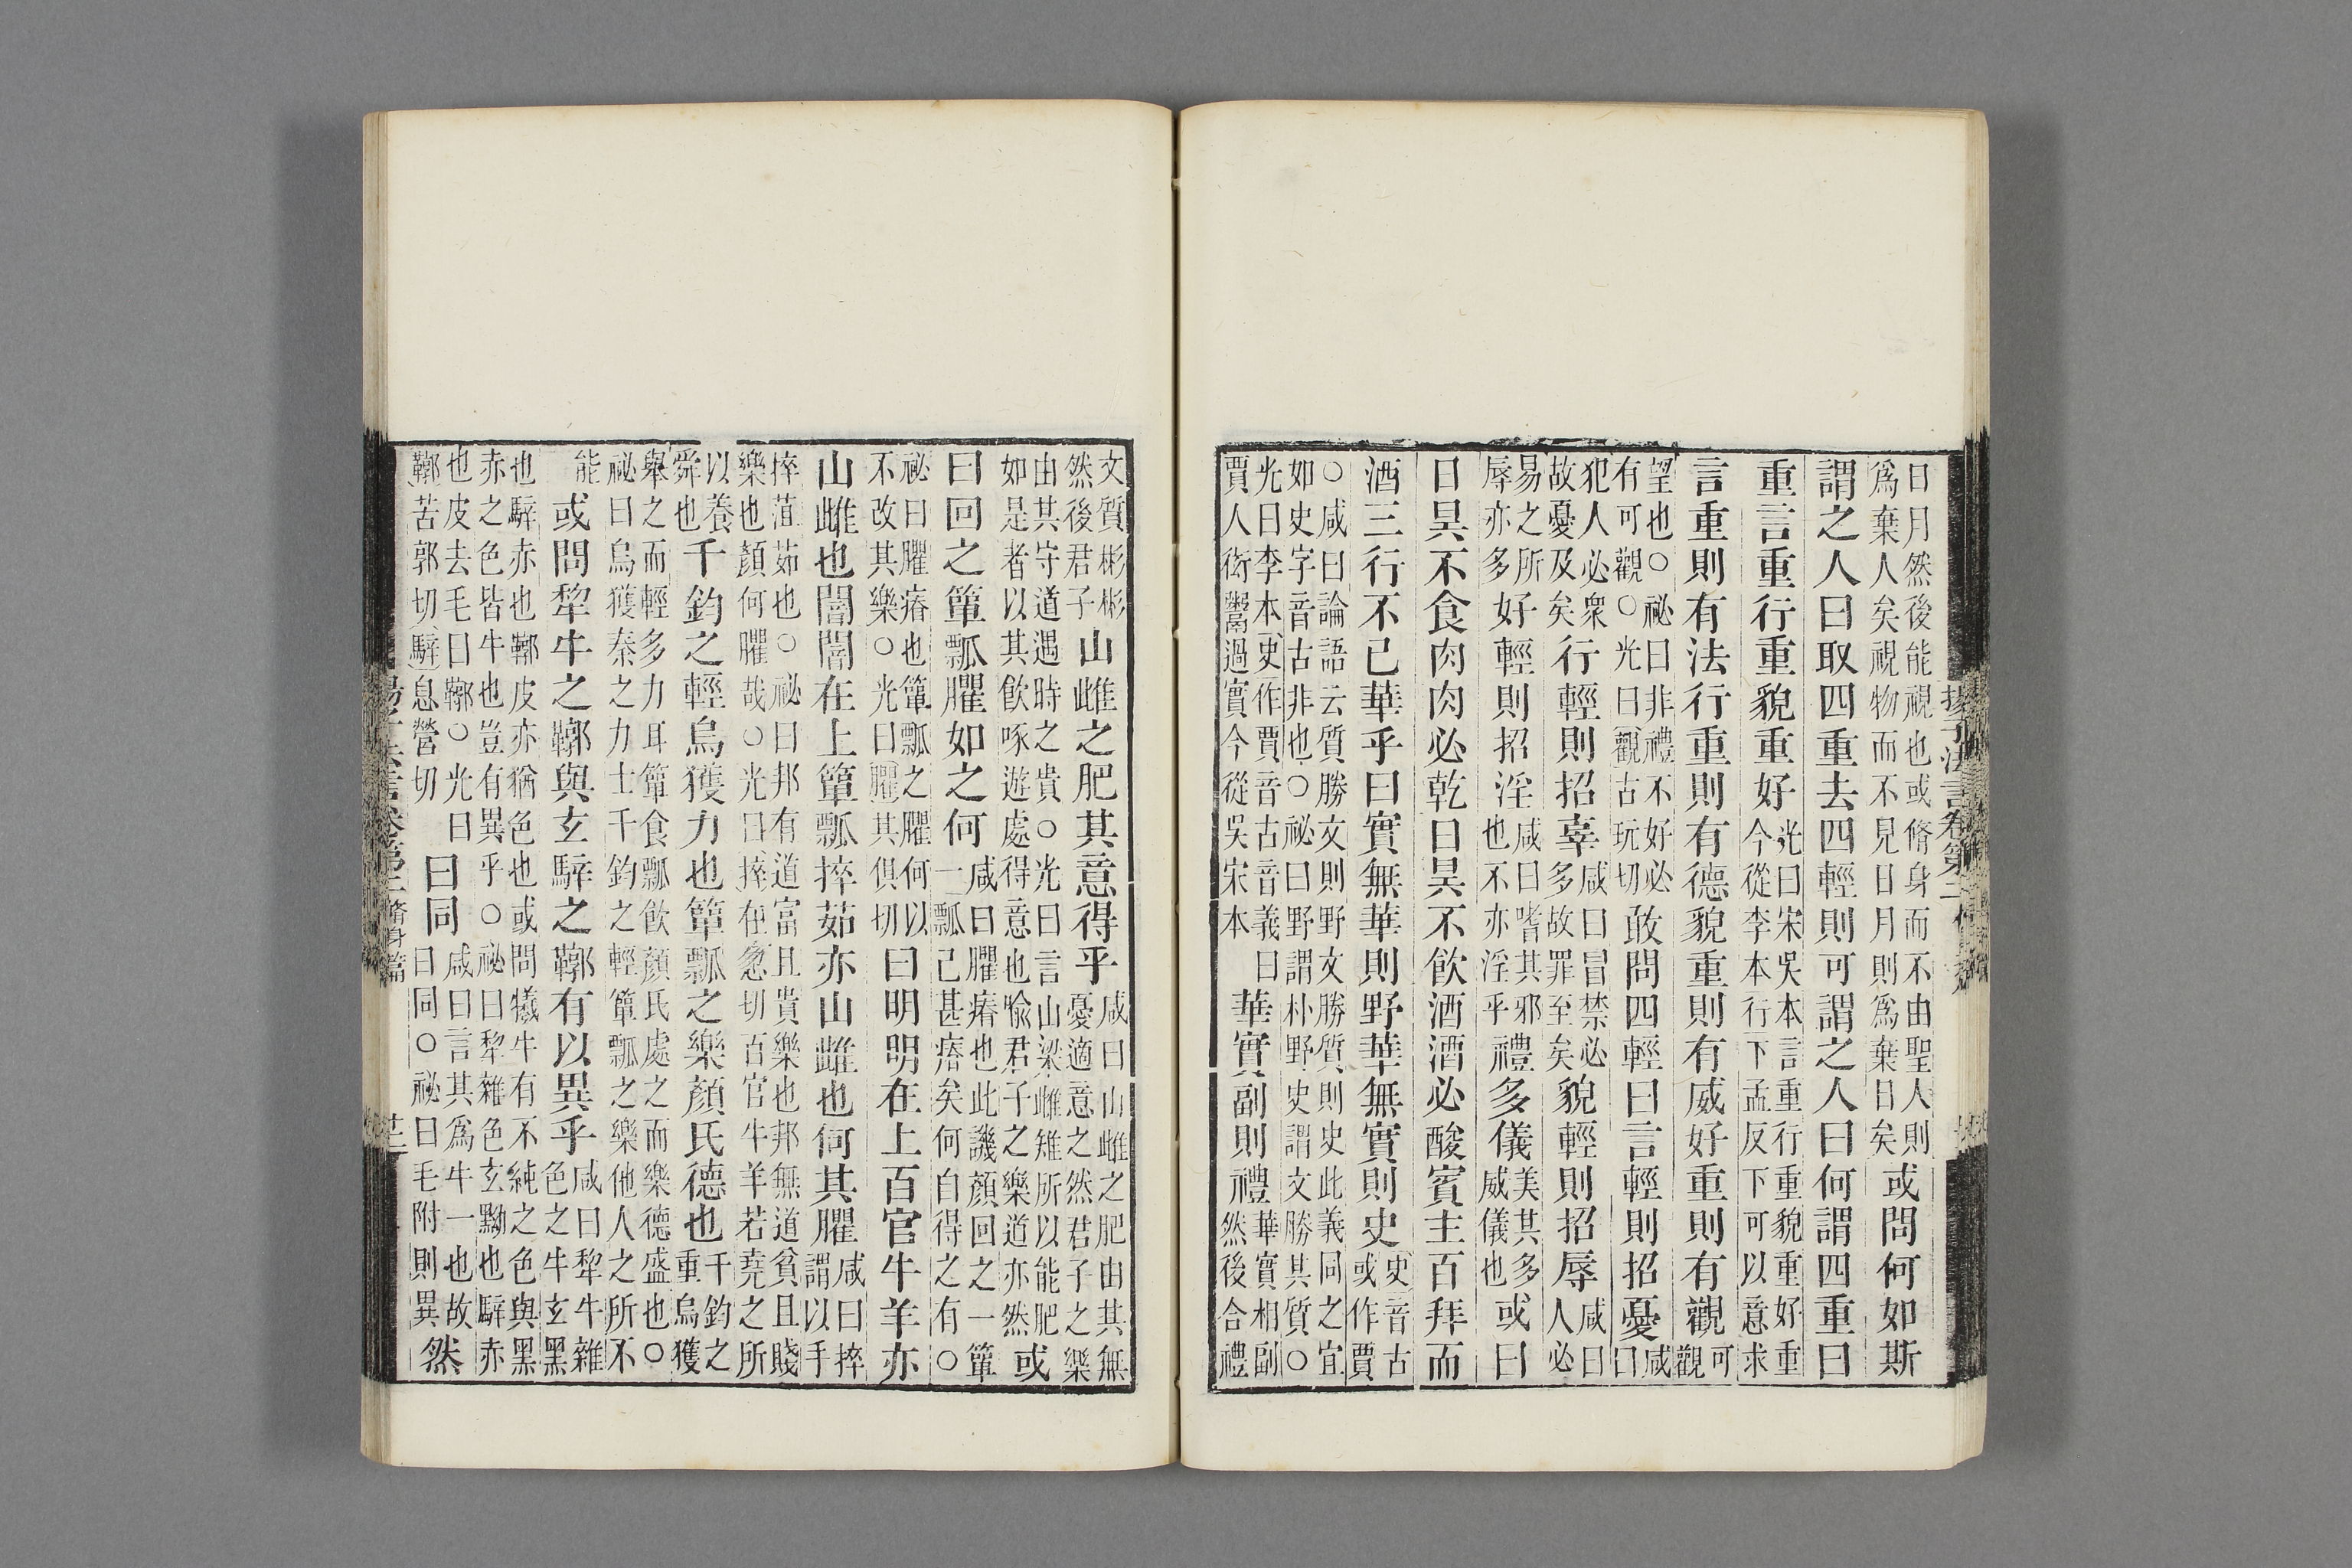 日月然後能視也或脩身而不由聖人則
爲棄人矣視物而不見日月則爲棄日矣
或問何如斯
謂之人曰取四重去四輕則可謂之人曰何謂四重曰
重言重行重貌重好
光曰宋吳本言重行重貌重好重
今從李本行下孟反下可以意求
言重則有法行重則有德貌重則有威好重則有觀
可
觀
望也○祕曰非禮不好必
有可觀○光曰觀古玩切
敢問四輕曰言輕則招憂
咸
曰
犯人必衆
故憂及矣
行輕則招辜
咸曰冒禁必
多故罪至矣
貌輕則招辱
咸曰
人必
易之所
辱亦多
好輕則招淫
咸曰嗜其邪
也不亦淫乎
禮多儀
美其多
威儀也
或曰
日昃不食肉肉必乾日昃不飲酒酒必酸賓主百拜而
酒三行不已華乎曰實無華則野華無實則史
史音古
或作賈
○咸曰論語云質勝文則野文勝質則史此義同之宜
如史字音古非也○祕曰野謂朴野史謂文勝其質○
光曰李本史作賈音古音義曰
賈人衒鬻過實今從吳宋本
華實副則禮
華實相副
然後合禮
揚子法言卷第二
文質彬彬
然後君子
山雌之肥其意得乎
咸曰山雌之肥由其無
憂適意之然君子之樂
由其守道遇時之貴○光曰言山梁雌雉所以能肥
如是者以其飲啄遊處得意也喻君子之樂道亦然
或
曰回之簞瓢臞如之何
咸曰臞瘠也此譏顏回之一簞
一瓢已甚瘠矣何自得之有○
祕曰臞瘠也簞瓢之臞何以
不改其樂○光曰臞其俱切
曰明明在上百官牛羊亦
山雌也闇闇在上簞瓢捽茹亦山雌也何其臞
咸曰捽
謂以手
捽葅茹也○祕曰邦有道富且貴樂也邦無道貧且賤
樂也顏何臞哉○光曰捽在忽切百官牛羊若堯之所
以養
舜也
千鈞之輕烏獲力也簞瓢之樂顏氏德也
千鈞之
重烏獲
舉之而輕多力耳簞食瓢飲顏氏處之而樂德盛也○
祕曰烏獲秦之力士千鈞之輕簞瓢之樂他人之所不
能
或問犂牛之鞹與玄騂之鞹有以異乎
咸曰犂牛雜
色之牛玄黑
也騂赤也鞹皮亦猶色也或問犧牛有不純之色與黑
赤之色皆牛也豈有異乎○祕曰犂雜色玄黝也騂赤
也皮去毛曰鞹○光曰
鞹苦郭切騂息營切
曰同
咸曰言其爲牛一也故
曰同○祕曰毛附則異
然
卷第二 脩身篇